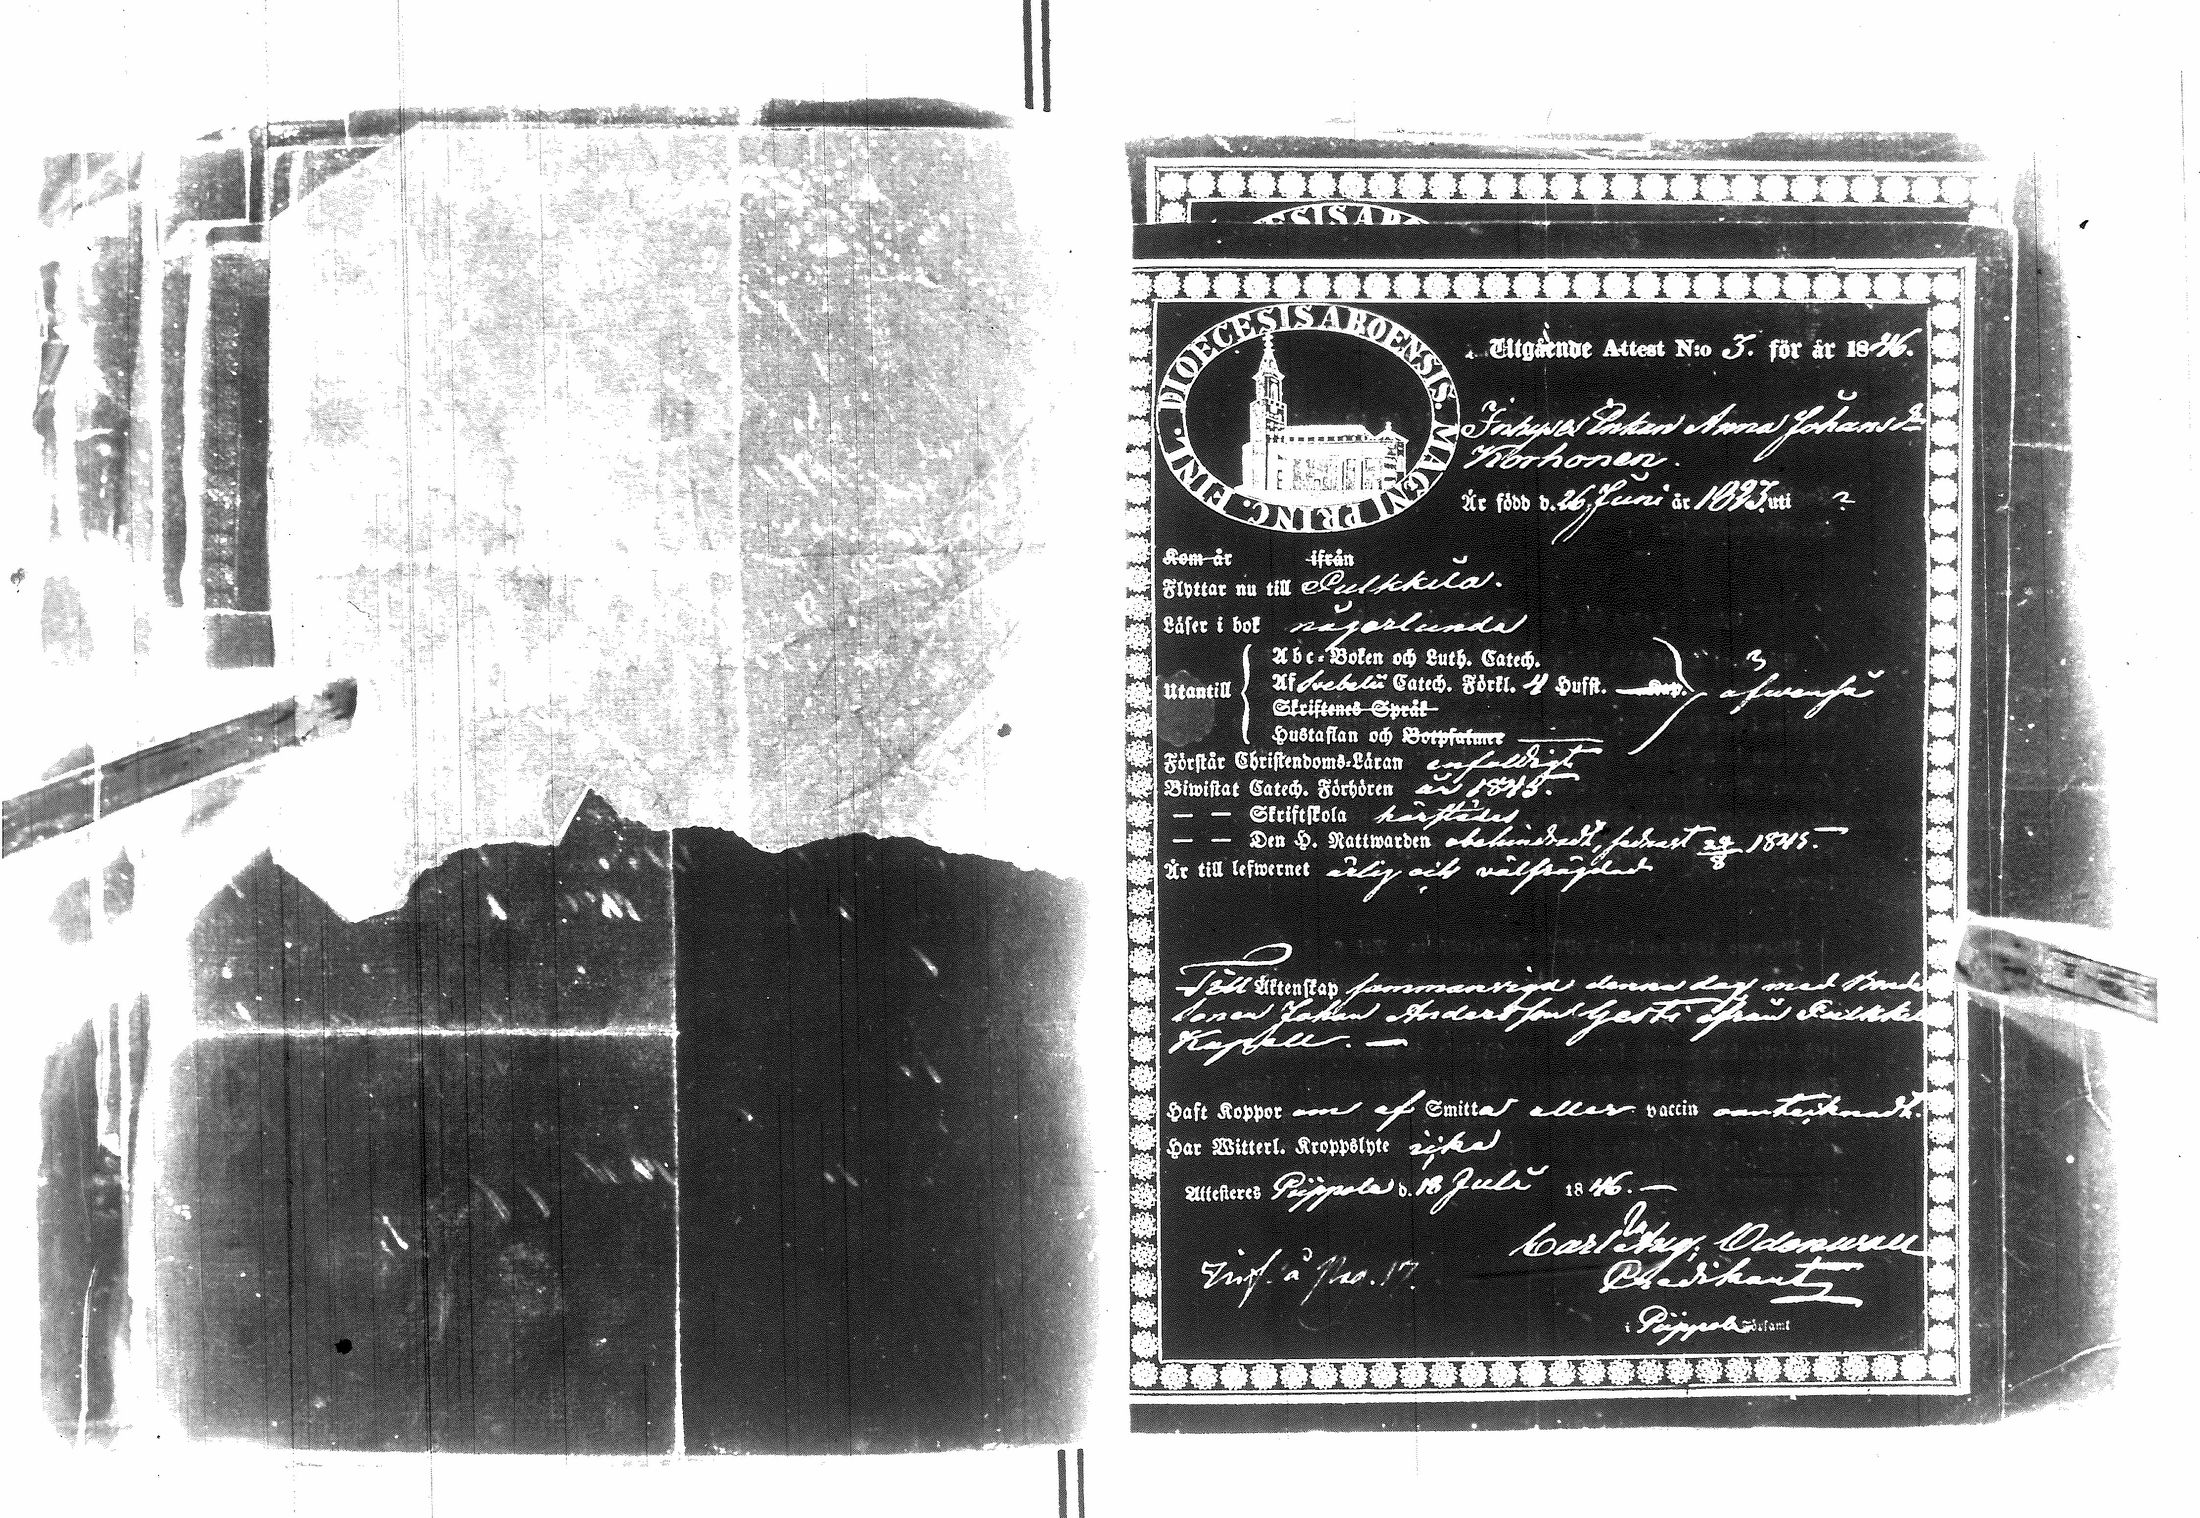 ESIS ABO
DIOECESIS ABOENSIS. MAGNI PRINC. FINL.
Utgående Attest N:o 3. för år 1846.
Inhyses Enkan Anna Johansdr
Korhonen.
Är född d. 26 Juni år 1823 uti ?
Kom år ifrån
Flyttar nu till Pulkkila.
Läser i bok någorlunda
Abc-Boken och Luth. Catech.
Utantill Af Svebelii Catech. Förkl. 4 Hufst. Kap. afwenså
Skriftenes Språk
Hustaflan och Botpsalmer
Förstår Christendoms-Läran enfaldigt
Biwistat Catech. Förhören år 1845.
— — Skriftskola härstädes
— — Den H. Nattwarden obehindradt, sednast 24/8 1845.
Är till lefwernet ärlig och välfrägdad
Till Äktenskap sammanvigd denna dag med Bonde
sonen Johan Andersson Gesti ifrån Pulkkila
Kapell. —
Haft Koppor om af Smitta eller vaccin oanteknadt.
Har Witterl. Kroppslyte icke
Attesteras Piippola d. 18 Juli 1846. —
Carl Aug. Odenwall
Predikant
Inf. å No. 17.
i Piippola Församl